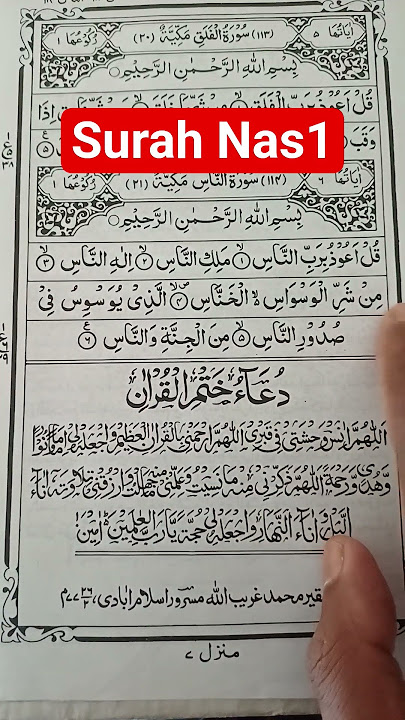 اٰيَاتُهَا ٥ (١١٣) سُوْرَةُ الْفَلَقِ مَكِّيَّةٌ (٢٠) رُكُوْعُهَا ١
بِسْمِ اللهِ الرَّحْمٰنِ الرَّحِيْمِ
قُلْ اَعُوْذُ بِرَبِّ الْفَلَقِ اِذَا
وَقَبَ
Surah Nas1
اٰيَاتُهَا ٦ (١١٤) سُوْرَةُ النَّاسِ مَكِّيَّةٌ (٢١) رُكُوْعُهَا ١
بِسْمِ اللهِ الرَّحْمٰنِ الرَّحِيْمِ
قُلْ اَعُوْذُ بِرَبِّ النَّاسِ ١ مَلِكِ النَّاسِ ٢ اِلٰهِ النَّاسِ ٣
مِنْ شَرِّ الْوَسْوَاسِ ەۙ الْخَنَّاسِ ٤ الَّذِيْ يُوَسْوِسُ فِيْ
صُدُوْرِ النَّاسِ ٥ مِنَ الْجِنَّةِ وَالنَّاسِ ٦
دُعَآءُ خَتْمِ الْقُرْاٰنِ
اَللّٰهُمَّ اٰنِسْ وَحْشَتِيْ فِيْ قَبْرِيْ اَللّٰهُمَّ ارْحَمْنِيْ بِالْقُرْاٰنِ الْعَظِيْمِ وَاجْعَلْهُ لِيْ اِمَامًا وَّنُوْرًا
وَّهُدًى وَّرَحْمَةً اَللّٰهُمَّ ذَكِّرْنِيْ مِنْهُ مَا نَسِيْتُ وَعَلِّمْنِيْ مِنْهُ مَا جَهِلْتُ وَارْزُقْنِيْ تِلَاوَتَهٗ اٰنَآءَ
الَّيْلِ وَاٰنَآءَ النَّهَارِ وَاجْعَلْهُ لِيْ حُجَّةً يَّا رَبَّ الْعٰلَمِيْنَ اٰمِيْنَ
فقیر محمد غریب اللہ مسرور اسلام آبادی،
منزل ٧